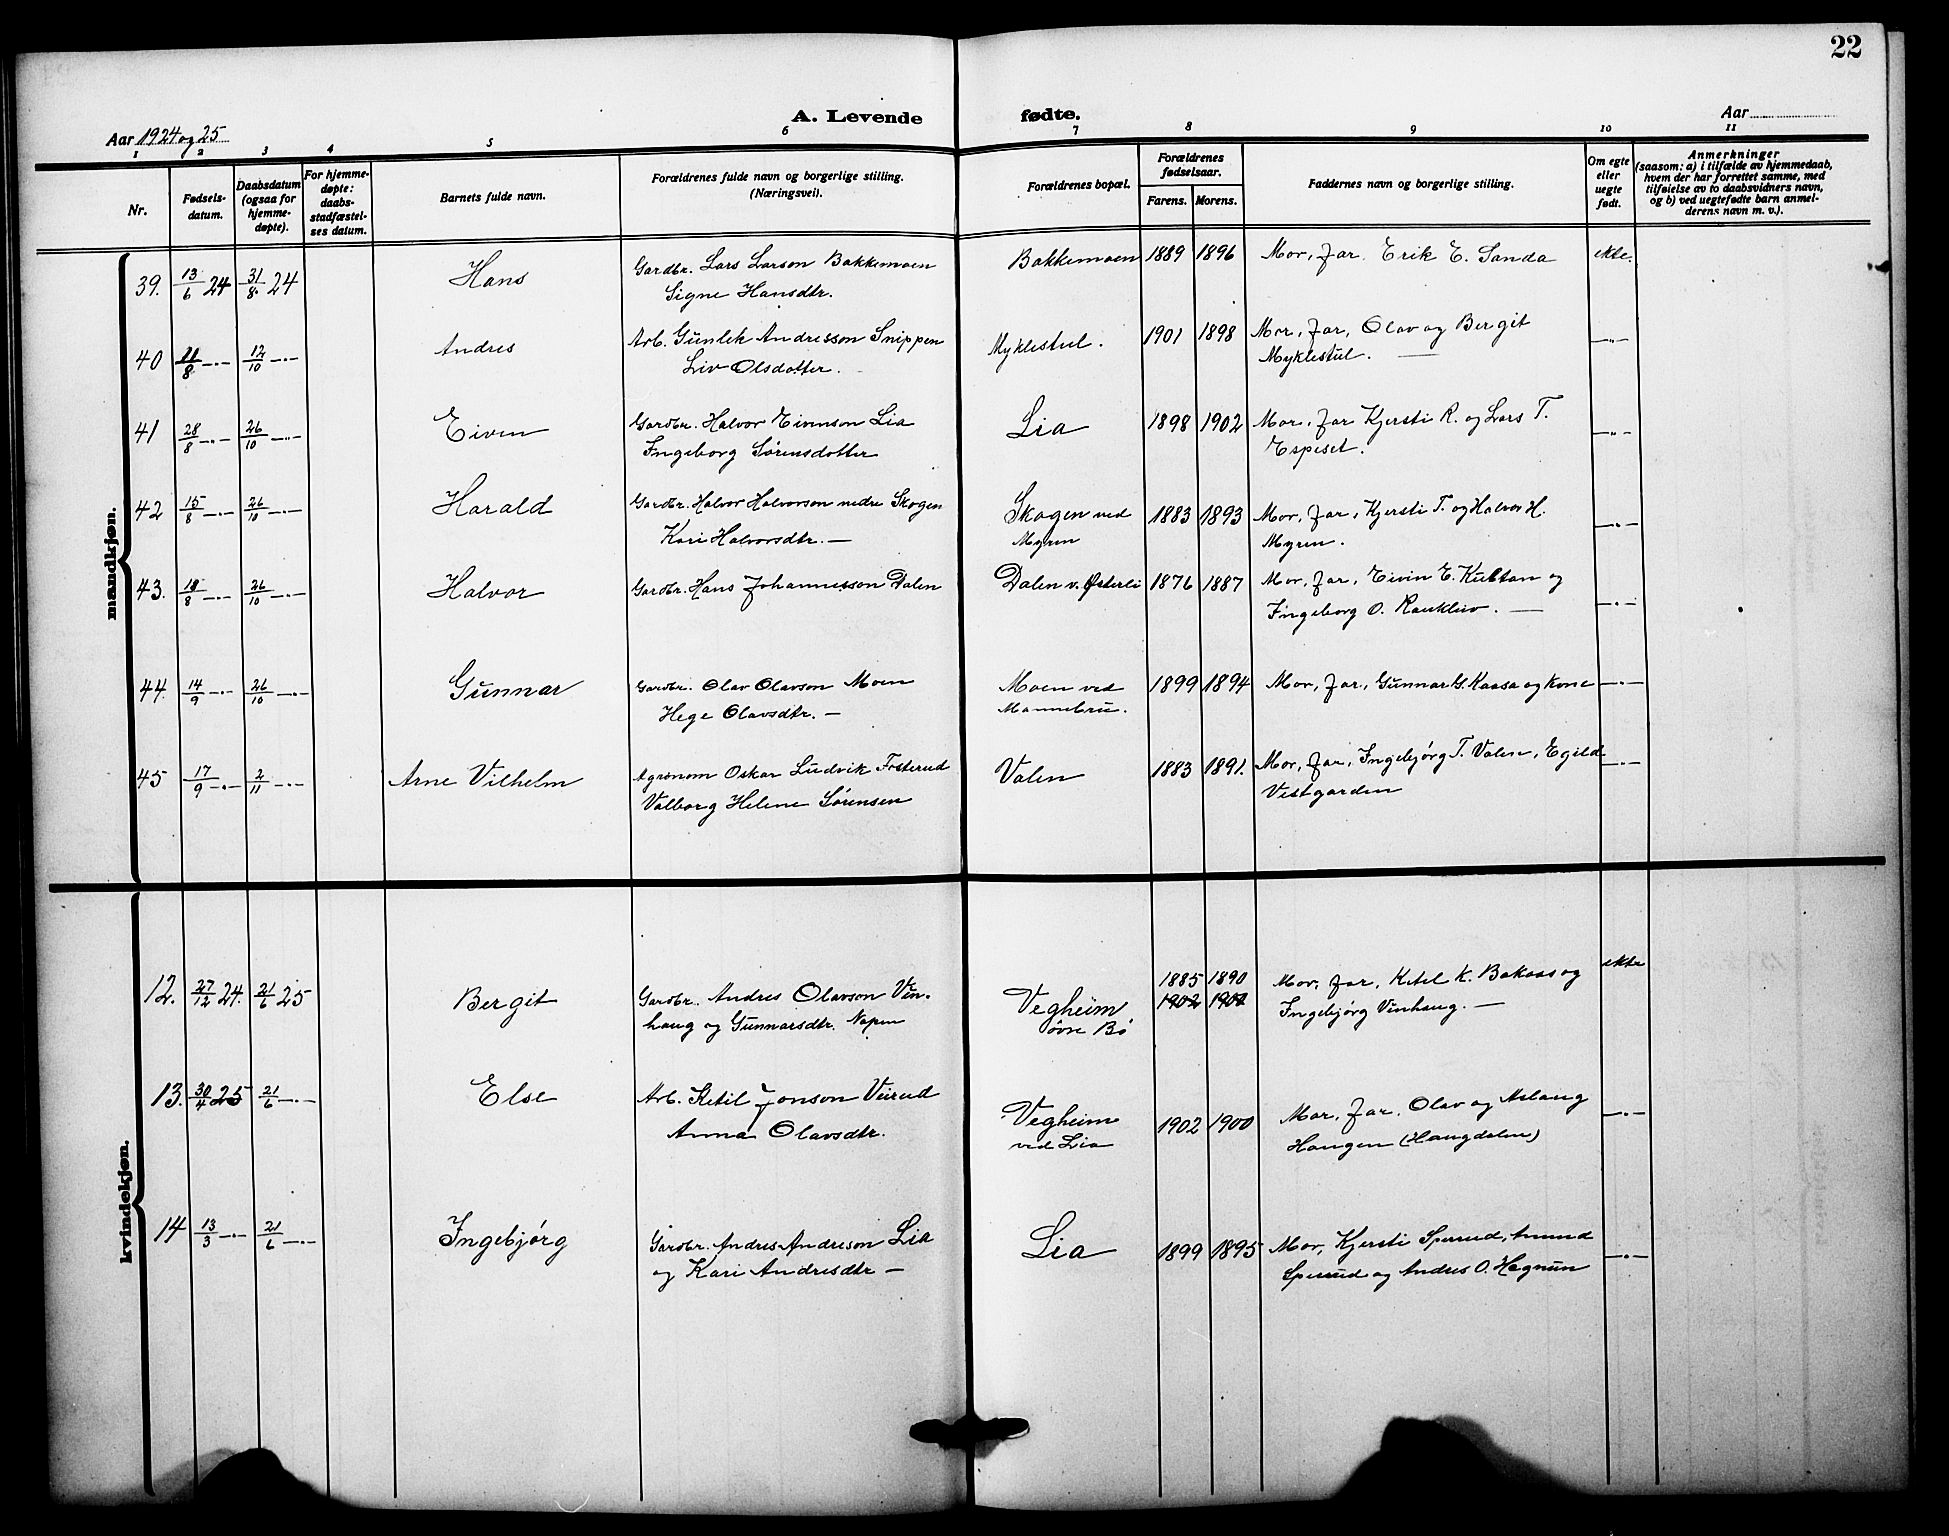 22
A. Levende fødte.
Aar 1924 og 25
Aar
1 2 3 4 5 6 7 8 9 10 11
Nr.
Fødsels-
datum.
Daabsdatum
(ogsaa for
hjemme-
døpte).
For hjemme-
døpte:
daabs-
stadfæstel-
ses datum.
Barnets fulde navn.
Forældrenes fulde navn og borgerlige stilling.
(Næringsvei).
Forældrenes bopæl.
Forældrenes
fødselsaar.
Farens. Morens.
Faddernes navn og borgerlige stilling.
Om egte
eller
uegte
født.
Anmerkninger
(saasom: a) i tilfælde av hjemmedaab,
hvem der har forrettet samme, med
tilføielse av to daabsvidners navn,
og b) ved uegtefødte barn anmel-
derens navn m. v.).
mandkjøn.
39. 13/6 24 31/8 24 Hans Gardbr. Lars Larson Bakkemoen Bakkemoen 1889 1896 Mor, far, Erik E. Sanda ekte.
Signe Hansdtr.
40 11/8 —"— 12/10 —"— Andres Arb. Gunlek Andresson Snippen Myklestul. 1901 1898 Mor, far, Olav og Bergit —"—
Liv Olsdotter. Myklestul. —
41 28/8 —"— 26/10 —"— Eiven Gardbr. Halvor Eivenson Lia Lia 1898 1902 Mor, far Kjersti R. og Lars T. —"—
Ingeborg Sørensdotter Espeset.
42 15/8 —"— 26/10 —"— Harald Gardbr. Halvor Halvorson nedre Skogen Skogen ved 1883 1893 Mor, far, Kjersti T. og Halvor H. —"—
Kari Halvorsdtr. — Myren Myren.
43. 18/8 —"— 26/10 —"— Halvor Gardbr. Hans Johannesson Dalen Dalen v. Østerli 1876 1887 Mor, far, Eivin E. Kultan og —"—
Ingeborg O. Raukleiv. —
44. 14/9 —"— 26/10 —"— Gunnar Gardbr. Olav Olavson Moen Moen ved 1899 1894 Mor, far, Gunnar G. Kaasa og kone —"—
Hege Olavsdtr. — Mannebru.
45 17/9 —"— 2/11 —"— Arne Vilhelm Agronom Oskar Ludvik Fosterud Valen 1883 1891. Mor, far, Ingebjørg T. Valen, Egild —"—
Valborg Helene Sørensen Vestgarden
kvindekjøn.
12. 27/12 24. 21/6 25 Bergit Gardbr. Andres Olavson Vin- Vegheim 1885 1890 Mor, far, Ketil K. Bakaas og ekte
haug og Gunnarsdtr. Napen øvre Bø 1902 Ingebjørg Vinhaug. —
13. 30/4 25 21/6 —"— Else Arb. Ketil Jonson Veirud Vegheim 1902 1900 Mor, far, Olav og Aslaug —"—
Anna Olavsdtr. ved Lia Haugen (Haugdalen)
14 13/3 —"— 21/6 —"— Ingebjørg Gardbr. Andres Andreson Lia Lia 1899 1895 Mor, Kjersti Sperrud, Amund —"—
og Kari Andresdtr — Sperrud og Andres O. Hegnun